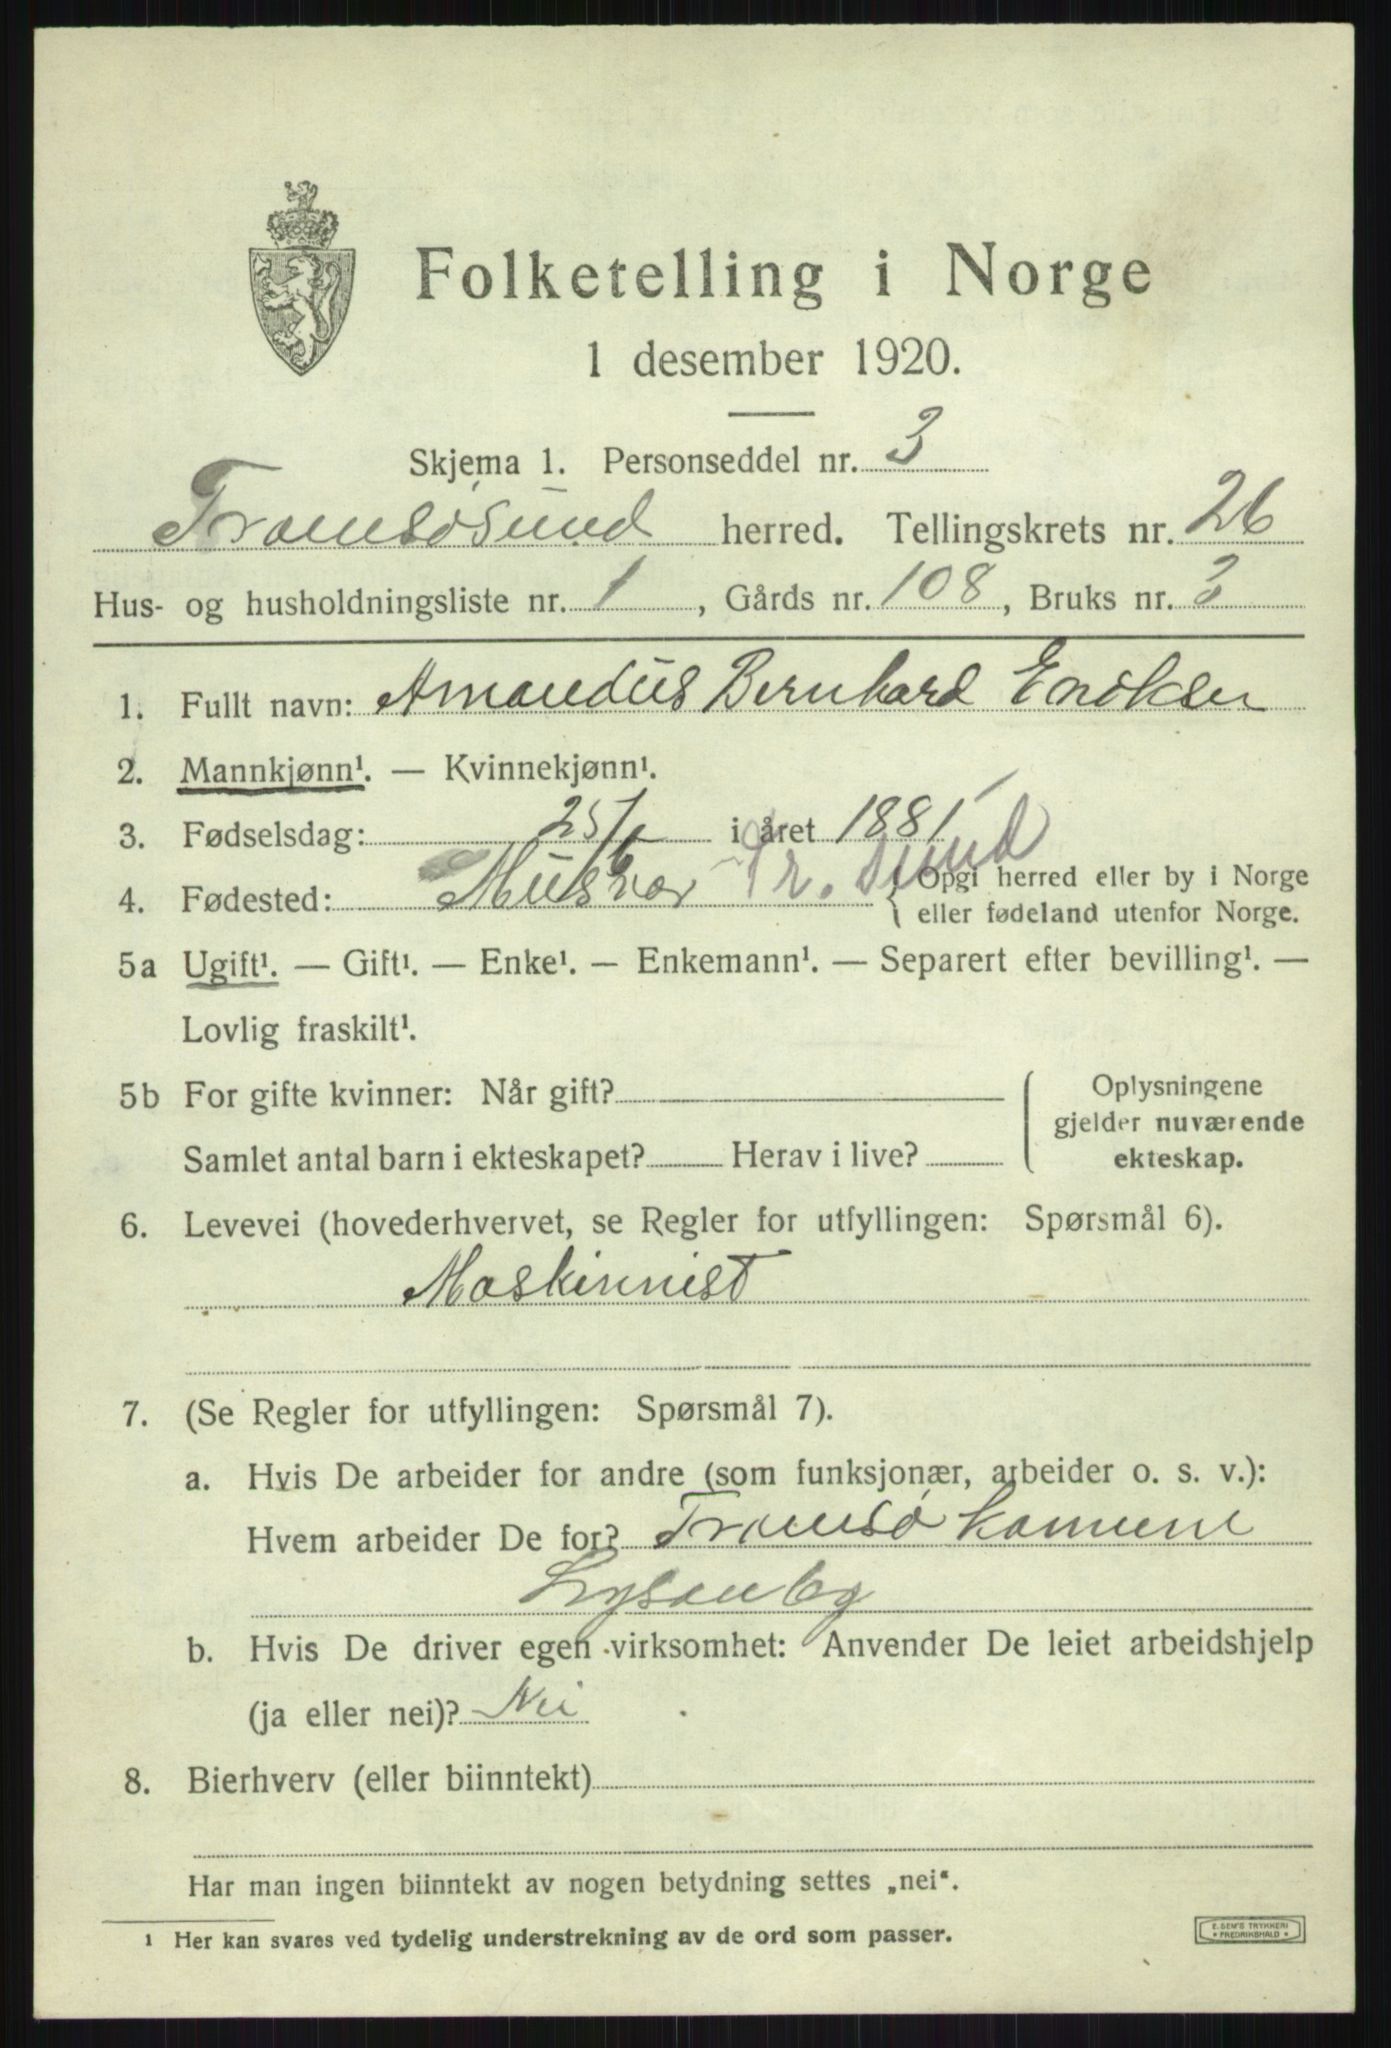 Folketelling i Norge
1 desember 1920.
Skjema 1. Personseddel nr. 3
Tromsøsund herred. Tellingskrets nr. 26
Hus- og husholdningsliste nr. 1, Gårds nr. 108, Bruks nr. 3
1. Fullt navn: Amandus Bernhard Enoksen
2. Mannkjønn¹. — Kvinnekjønn¹.
3. Fødselsdag: 25/6 i året 1881
4. Fødested: Musvær Tr. sund { Opgi herred eller by i Norge
eller fødeland utenfor Norge.
5a Ugift¹. — Gift¹. — Enke¹. — Enkemann¹. — Separert efter bevilling¹. —
Lovlig fraskilt¹.
5b For gifte kvinner: Når gift?
Samlet antal barn i ekteskapet? Herav i live?
Oplysningene
gjelder nuværende
ekteskap.
6. Levevei (hovederhvervet, se Regler for utfyllingen: Spørsmål 6).
Maskinnist
7. (Se Regler for utfyllingen: Spørsmål 7).
a. Hvis De arbeider for andre (som funksjonær, arbeider o. s. v.):
Hvem arbeider De for? Tromsø Komune
Lysanleg
b. Hvis De driver egen virksomhet: Anvender De leiet arbeidshjelp
(ja eller nei)? Nei
8. Bierhverv (eller biinntekt)
Har man ingen biinntekt av nogen betydning settes „nei“.
¹ Her kan svares ved tydelig understrekning av de ord som passer.
E. SEM'S TRYKKERI
* FREDRIKSHALD *